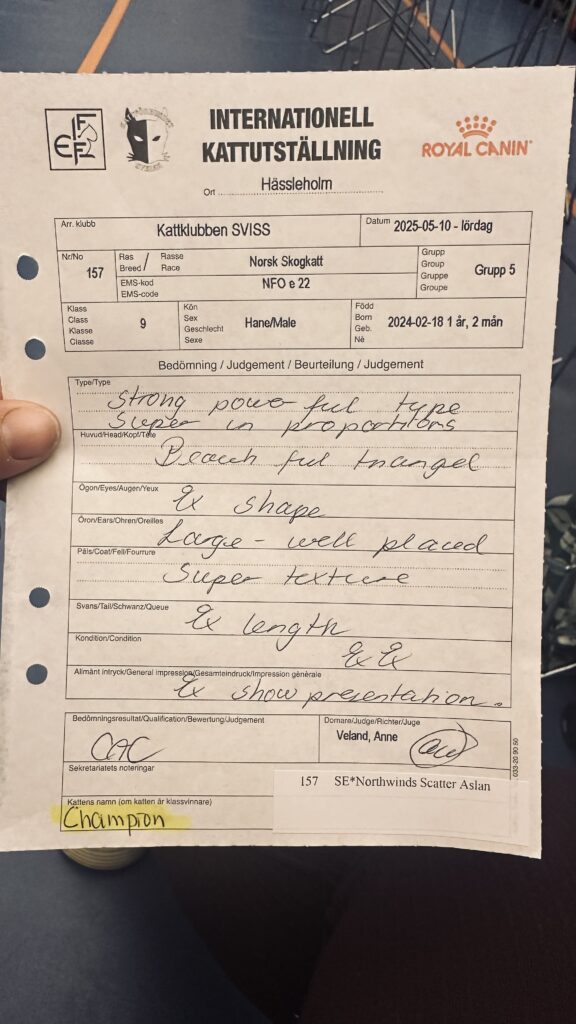 FIFe
INTERNATIONELL
KATTUTSTÄLLNING
ROYAL CANIN
Ort Hässleholm
Arr. klubb Kattklubben SVISS Datum 2025-05-10 - lördag
Nr/No 157
Ras Rasse
Breed Race
Norsk Skogkatt
EMS-kod
EMS-code
NFO e 22
Grupp
Group
Gruppe
Groupe
Grupp 5
Klass
Class
Klasse
Classe
9
Kön
Sex
Geschlecht
Sexe
Hane/Male
Född
Born
Geb.
Né
2024-02-18 1 år, 2 mån
Bedömning / Judgement / Beurteilung / Judgement
Type/Type
Strong powo ful type
Super in proportions
Huvud/Head/Kopf/Tête
Beauti ful triangel
Ögon/Eyes/Augen/Yeux
Ex shape
Öron/Ears/Ohren/Oreilles
Large - well placed
Päls/Coat/Fell/Fourrure
Super texture
Svans/Tail/Schwanz/Queue
Ex length
Kondition/Condition
Ex Ex
Allmänt intryck/General impression/Gesamteindruck/Impression générale
Ex show presentation.
Bedömningsresultat/Qualification/Bewertung/Judgement
CAC
Domare/Judge/Richter/Juge
Veland, Anne
Sekretariatets noteringar
157 SE*Northwinds Scatter Aslan
Kattens namn (om katten är klassvinnare)
Champion
033-20 90 50